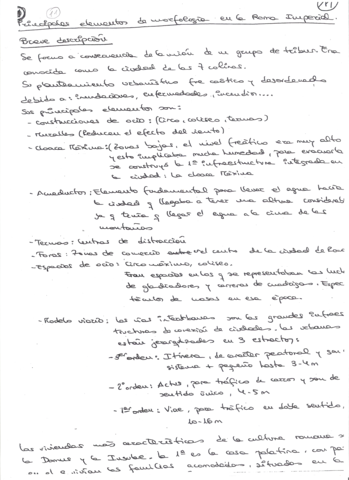 Principales elementos de morfología en la Roma Imperial.
Breve descripción
Se forma a consecuencia de la unión de un grupo de tribus. Era
conocida como la ciudad de las 7 colinas.
Su planteamiento urbanístico fue caótico y desordenado
debido a: inundaciones, enfermedades, incendios....
Sus principales elementos son:
- Construcciones de ocio: (Circo, coliseo, termas)
- Murallas (Reducen el efecto del viento)
- Cloaca Máxima: (Zonas bajas, el nivel freático era muy alto
y esto implicaba mucha humedad, para evacuarla
se construyó la 1ª infraestructura integrada en
la ciudad: La cloaca Máxima
- Acueductos: Elemento fundamental para llevar el agua hasta
la ciudad y llegaba a tener una altura considerable
ya q tenía q llegar el agua a la cima de las
montañas
- Termas: Centros de distracción
- Foros: Zonas de comercio en el centro de la ciudad de
- Espacios de ocio: Circo máximo, coliseo.
Eran espacios en los q se representaban las luchas
de gladiadores y carreras de cuadrigas. Espec
táculos de masas en esa época.
- Modelo viario: las vías interurbanas son las grandes infraes
tructuras de conexión de ciudades, las urbanas
están jerarquizadas en 3 estractos:
- 3er orden: Itinera, de carácter peatonal y son
sistema + pequeño hasta 3-4 m
- 2º orden: Actus, para tráfico de carros y son de
sentido único, 4-5 m
- 1er orden: Viae, para tráfico en doble sentido,
10-16 m
Las viviendas más características de la cultura romana
la Domus y la Insulae. La 1ª es la casa palatina, con
el q vivían las familias acomodadas, situadas en la